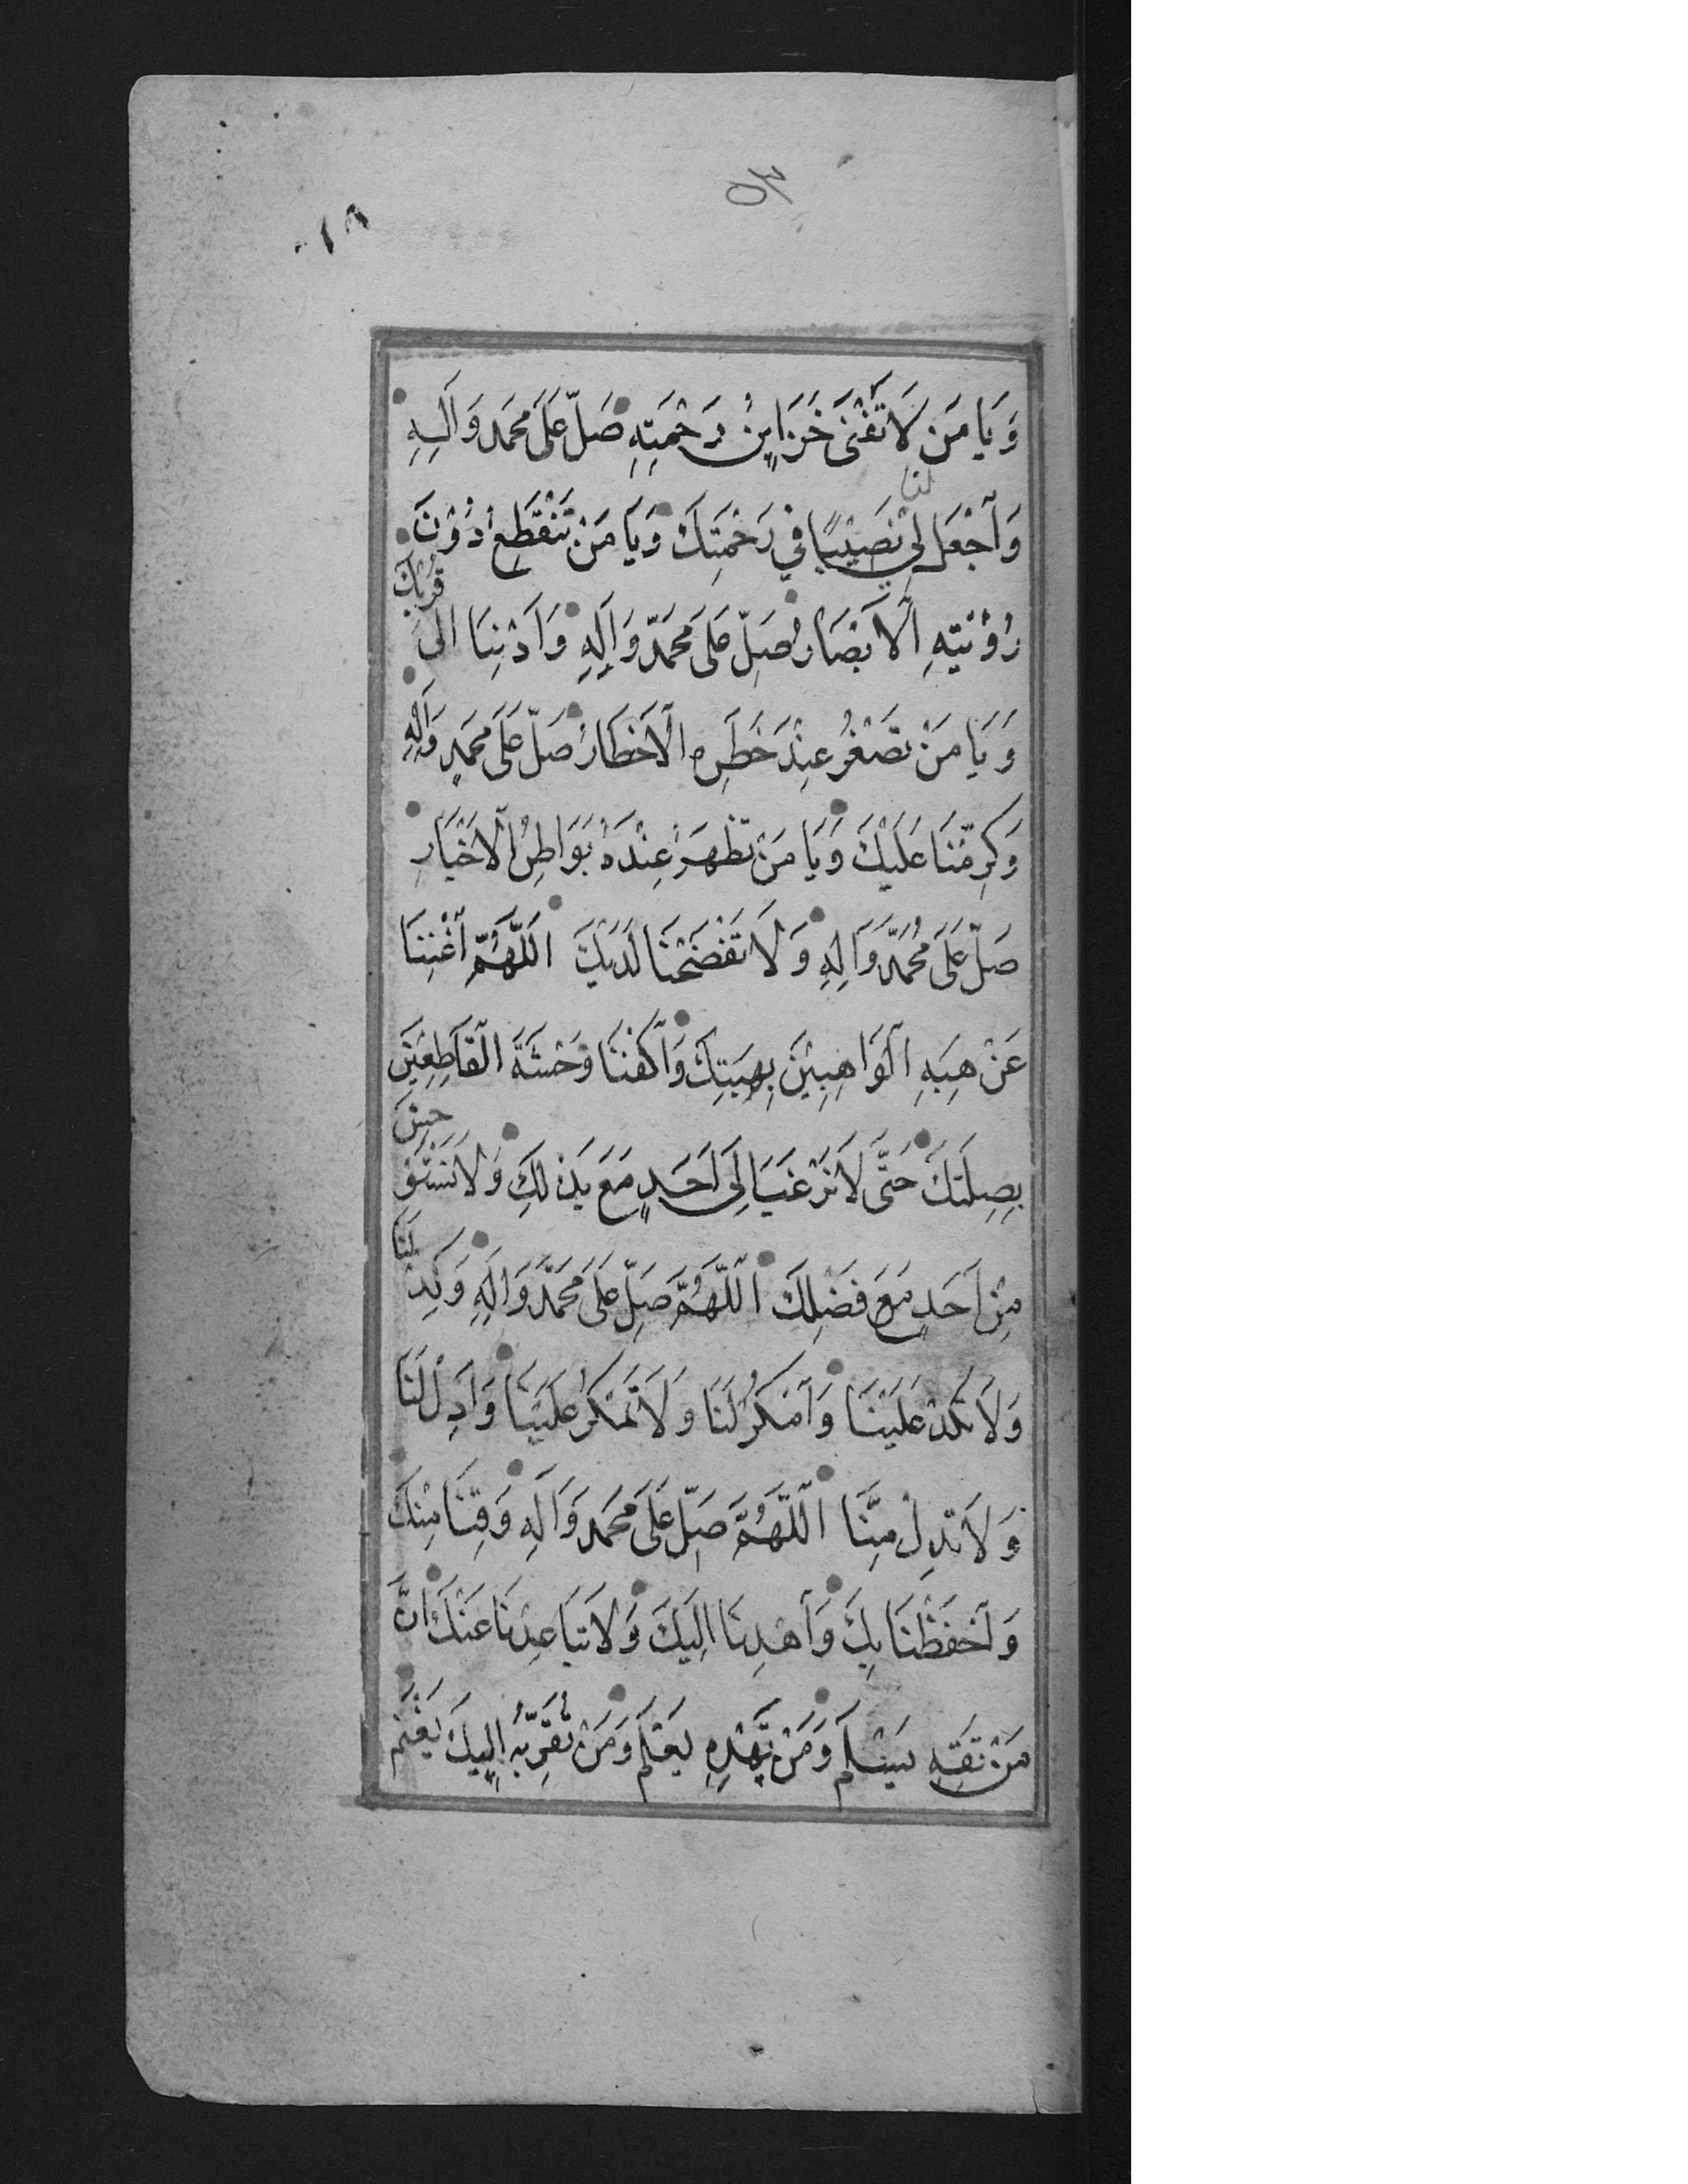 ٥٣
١٨
وَيَا مَن لَا تَفْنَى خَزَايِنُ رَحْمَتِهِ صَلِّ عَلَى مُحَمَّد وَآلِهِ
لنا
وَاَجْعَل لِي نَصِيْبًا فِي رَحْمَتِكَ وَيَا مَنْ تَنْقَطِعُ دُوْنَ
رُؤْيَتِهِ الْاَبْصَارُ صَلِّ عَلَى مُحَمَّد وَآلِهِ وَاَدْنِنَا اِلَى قُرْبِكَ
وَيَا مَنْ تَصْغُرُ عِنْدَ خَطَرِهِ الْاَخْطَارُ صَلِّ عَلَى مُحَمَّدٍ وَآلِهِ
وَكَرِّمْنَا عَلَيْكَ وَيَا مَنْ تَظْهَرُ عِنْدَهُ بَوَاطِنُ الْاَخْبَارِ
صَلِّ عَلَى مُحَمَّد وَآلِهِ وَلَا تَفْضَحْنَا لَدَيْكَ اَللَّهُمَّ اَغْنِنَا
عَنْ هِبَهِ الْوَاهِبِيْنَ بِهِبَتِكَ وَاَكْفِنَا وَحْشَةَ الْقَاطِعِيْنَ
بِصِلَتِكَ حَتَّى لَا نَرْغَبَ اِلَى اَحَدٍ مَعَ بَذْلِكَ وَلَا نَسْتَوْحِشَ
مِنْ اَحَدٍ مَعَ فَضْلِكَ اَللَّهُمَّ صَلِّ عَلَى مُحَمَّد وَآلِهِ وَكِدْ لَنَا
وَلَا تَكِدْ عَلَيْنَا وَاَمْكُرْ لَنَا وَلَا تَمْكُرْ عَلَيْنَا وَاَدِلْ لَنَا
وَلَا تُدِلْ مِنَّا اَللَّهُمَّ صَلِّ عَلَى مُحَمَّد وَآلِهِ وَقِنَا مِنْكَ
وَاَحْفَظْنَا بِكَ وَاَهْدِنَا اِلَيْكَ وَلَا تُبَاعِدْنَا عَنْكَ اِنَّ
مَنْ تَقِهِ يَسْلَمْ وَمَنْ تَهْدِهِ يَعْلَمْ وَمَنْ تُقَرِّبْهُ اِلَيْكَ يَغْنَمْ